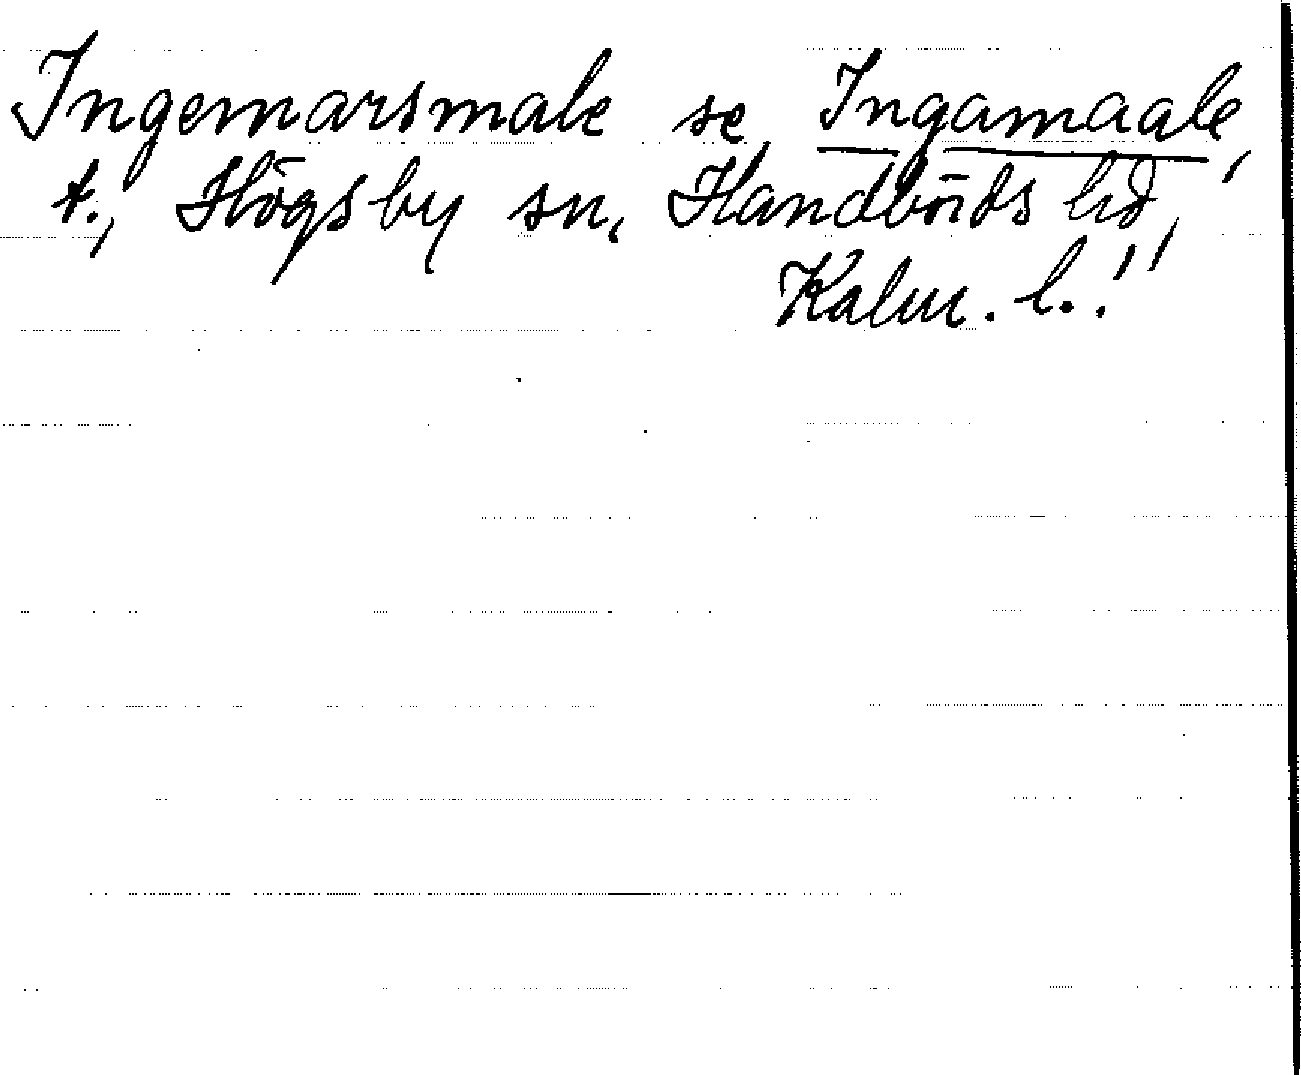 Ingemarsmale se Ingamaale,
t., Högsby sn, Handbörds hd,
Kalm. l.!